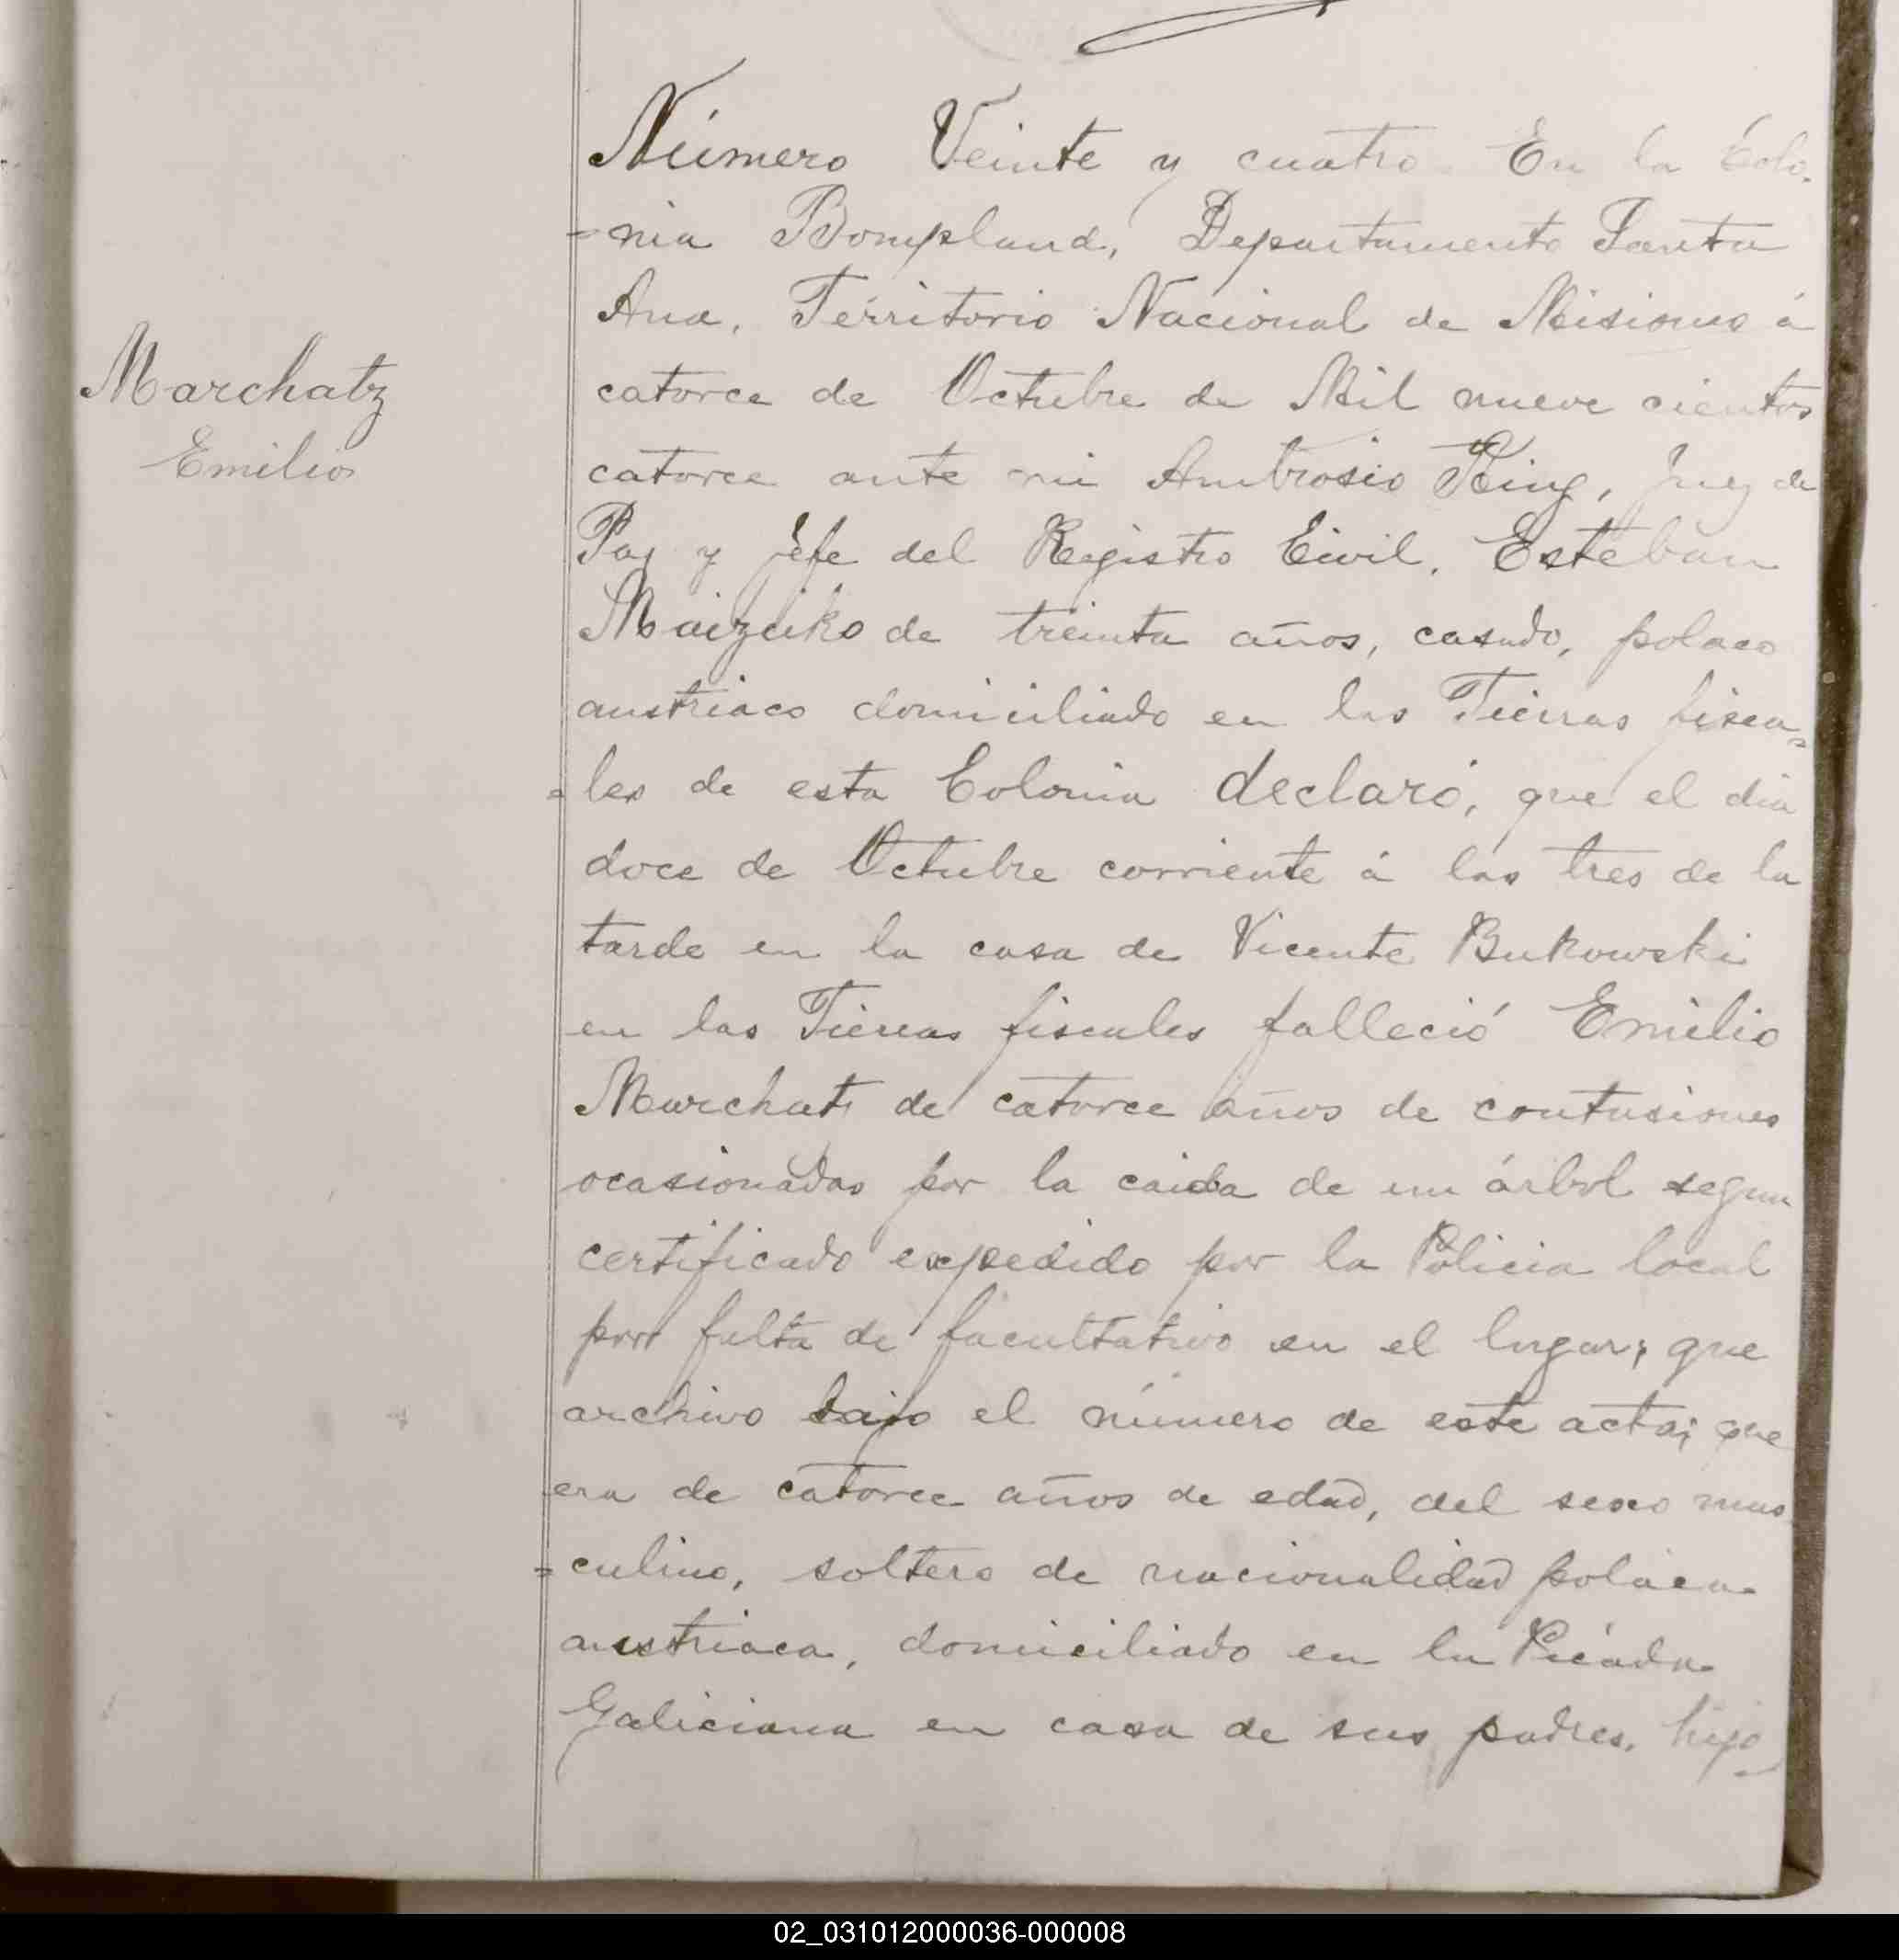 Número Veinte y cuatro. En la Colo-
=nia Bompland, Departamento Santa
Ana, Territorio Nacional de Misiones á
Marchatz
Emilio
catorce de Octubre de Mil nueve cientos
catorce ante mi Ambrosio King, Juez de
Paz y jefe del Registro Civil, Esteban
de treinta años, casado, polaco
austriaco domiciliado en las Tierras fisca=
=les de esta Colonia declaró, que el dia
doce de Octubre corriente á las tres de la
tarde en la casa de Vicente Bukowski
en las Tierras fiscales falleció Emilio
Marchatz de catorce años de contusiones
ocasionadas por la caida de un árbol segun
certificado expedido por la Policia local
por falta de facultativo en el lugar; que
archivo bajo el número de este acta; que
era de catorce años de edad, del sexo mas
=culino, soltero de nacionalidad polaca
austriaca, domiciliado en la Picada
Galiciana en casa de sus padres, hijo
02_031012000036-000008